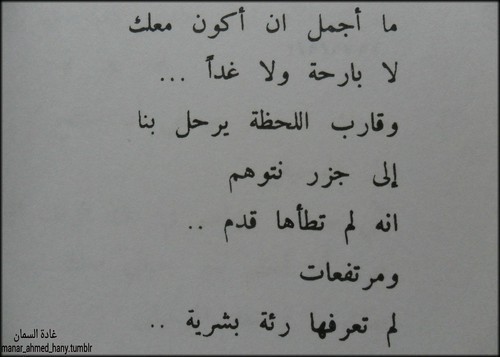 ما أجمل ان أكون معك
لا بارحة ولا غداً ...
وقارب اللحظة يرحل بنا
إلى جزر نتوهم
انه لم تطأها قدم ..
ومرتفعات
لم تعرفها رئة بشرية ..
غادة السمان
manar_ahmed_hany.tumblr